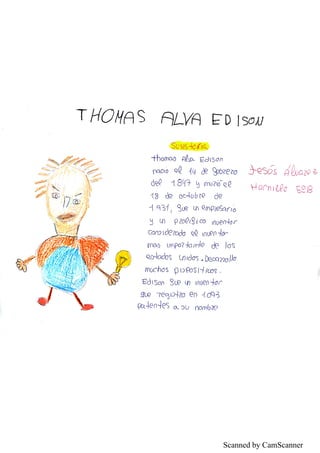 THOMAS ALVA EDISON
Su istoria
thomas Alva Edison
nacio el 14 de febrero
del 1847 y murio el
18 de octubre de
1931, fue un empresario
y un prolifico inventor
considerado el inventor
mas importante de los
estados unidos. Desarrollo
muchos dispositivos.
Edison fue un inventor
que registro en 1093
patentes a su nombre
Jesús Álvarez
Hornillo 5ºB
Scanned by CamScanner